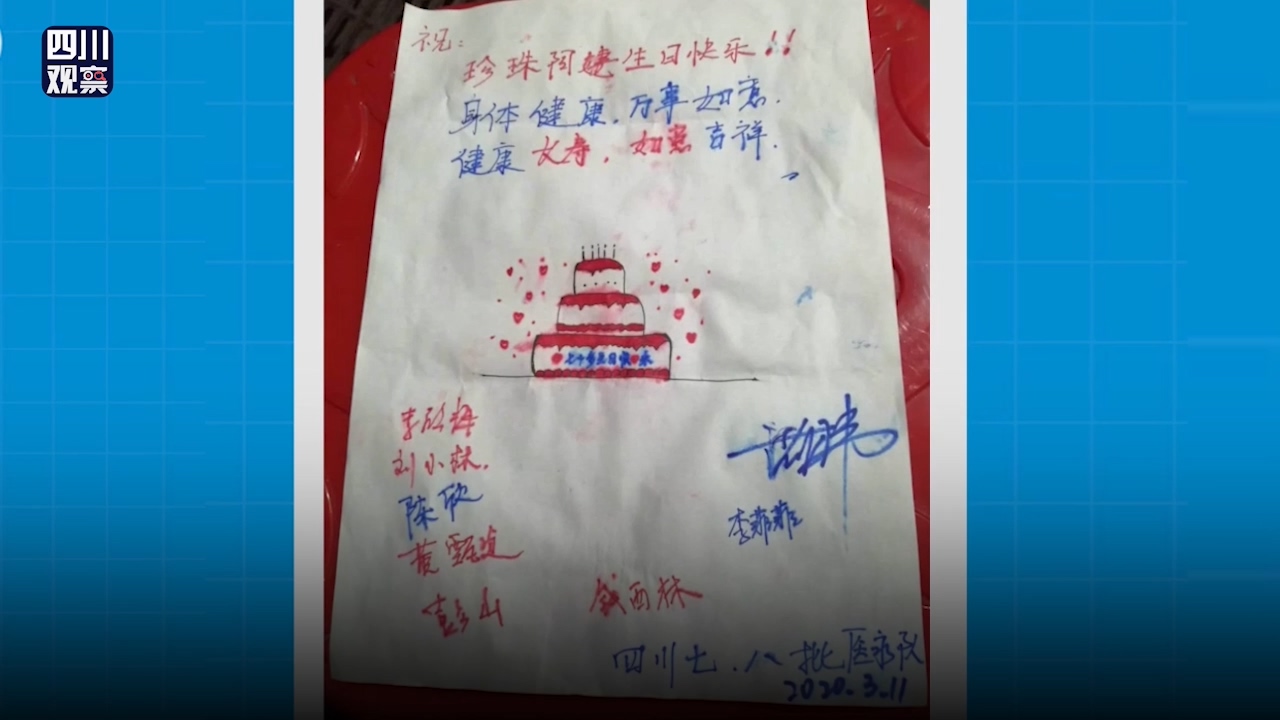 四川
观察
祝:
珍珠阿婕生日快乐!!
身体健康.万事如意.
健康长寿,如意吉祥.
七十岁生日快乐
刘小林.
陈欣
李菲菲
彭山
四川七、八批医疗队
2020.3.11